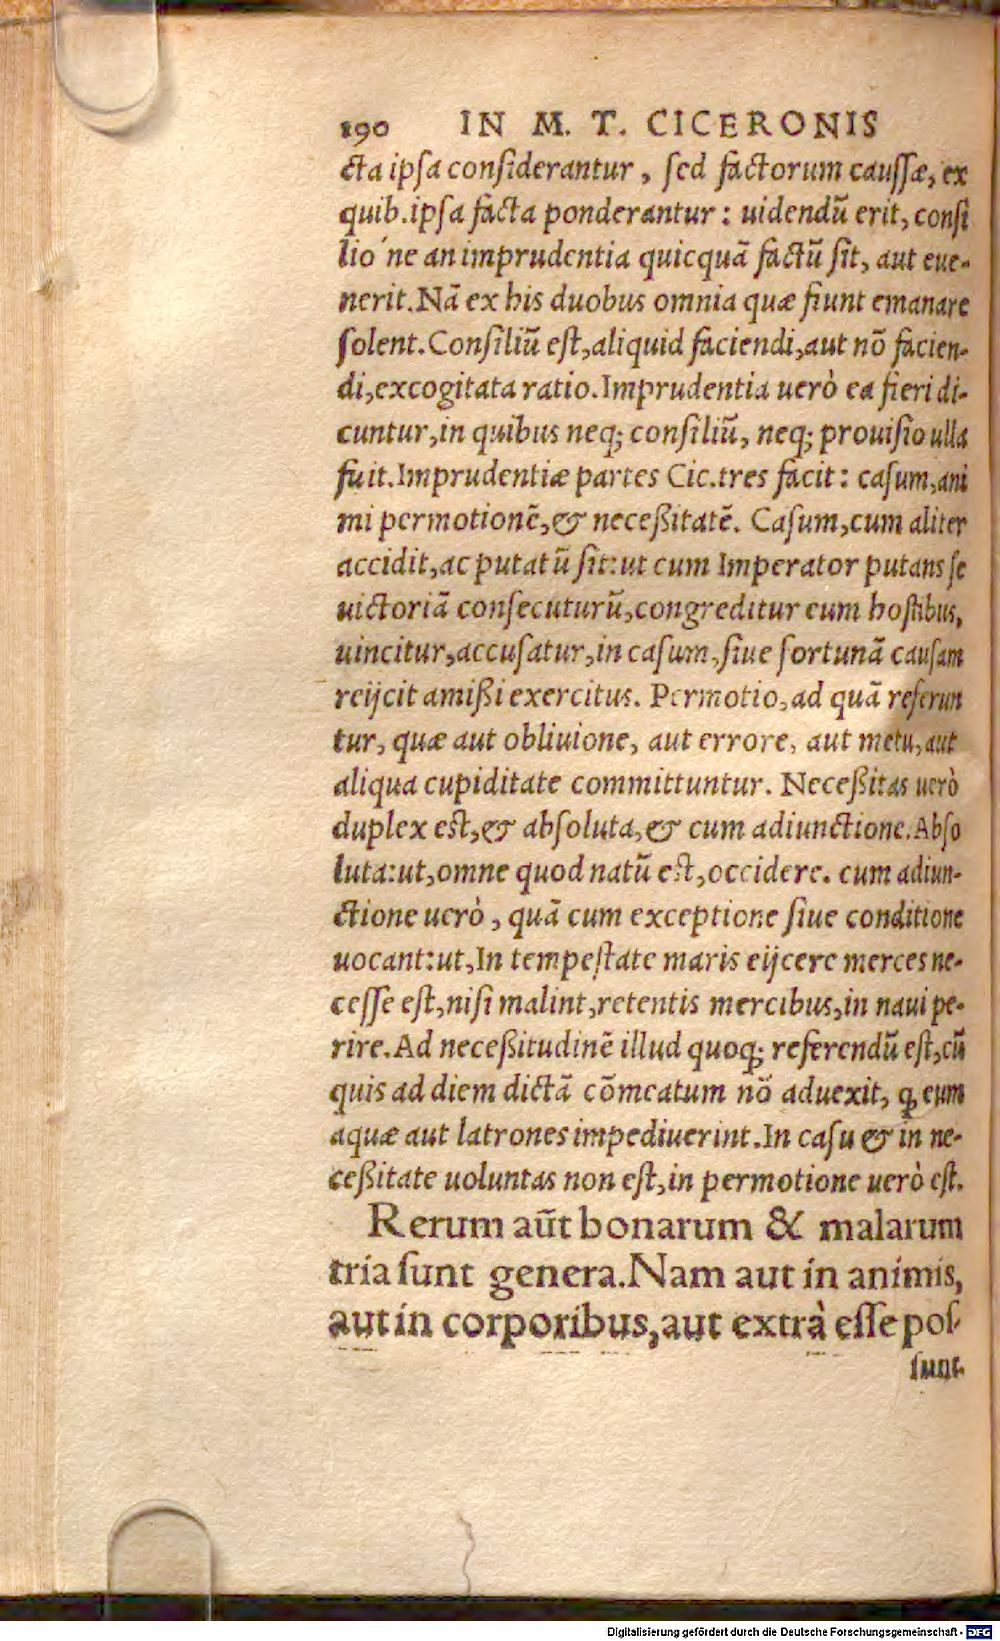 190 IN M. T. CICERONIS
cta ipsa considerantur, sed factorum caussæ, ex
quib. ipsa facta ponderantur: uidendũ erit, consi
lio´ne an imprudentia quicquã factũ sit, aut eue-
nerit. Nã ex his duobus omnia quæ fiunt emanare
solent. Consiliũ est, aliquid faciendi, aut nõ facien-
di, excogitata ratio. Imprudentia uerò ea fieri di-
cuntur, in quibus neq; consiliũ, neq; prouisio ulla
fuit. Imprudentiæ partes Cic. tres facit: casum, ani
mi permotionẽ, & neceßitatẽ. Casum, cum aliter
accidit, ac putatũ sit: ut cum Imperator putans se
uictoriã consecuturũ, congreditur cum hostibus,
uincitur, accusatur, in casum, siue fortunã causam
reijcit amißi exercitus. Permotio, ad quã referun
tur, quæ aut obliuione, aut errore, aut metu, aut
aliqua cupiditate committuntur. Neceßitas uerò
duplex est, & absoluta, & cum adiunctione. Abso
luta: ut, omne quod natũ est, occidere. cum adiun-
ctione uerò, quã cum exceptione siue conditione
uocant: ut, In tempestate maris eijcere merces ne-
cesse est, nisi malint, retentis mercibus, in naui pe-
rire. Ad neceßitudinẽ illud quoq; referendũ est, cũ
quis ad diem dictã cõmeatum nõ aduexit, ꝙ eum
aquæ aut latrones impediuerint. In casu & in ne-
ceßitate uoluntas non est, in permotione uerò est.
Rerum aũt bonarum & malarum
tria sunt genera. Nam aut in animis,
aut in corporibus, aut extrà esse pos-
sunt.
Digitalisierung gefördert durch die Deutsche Forschungsgemeinschaft - DFG